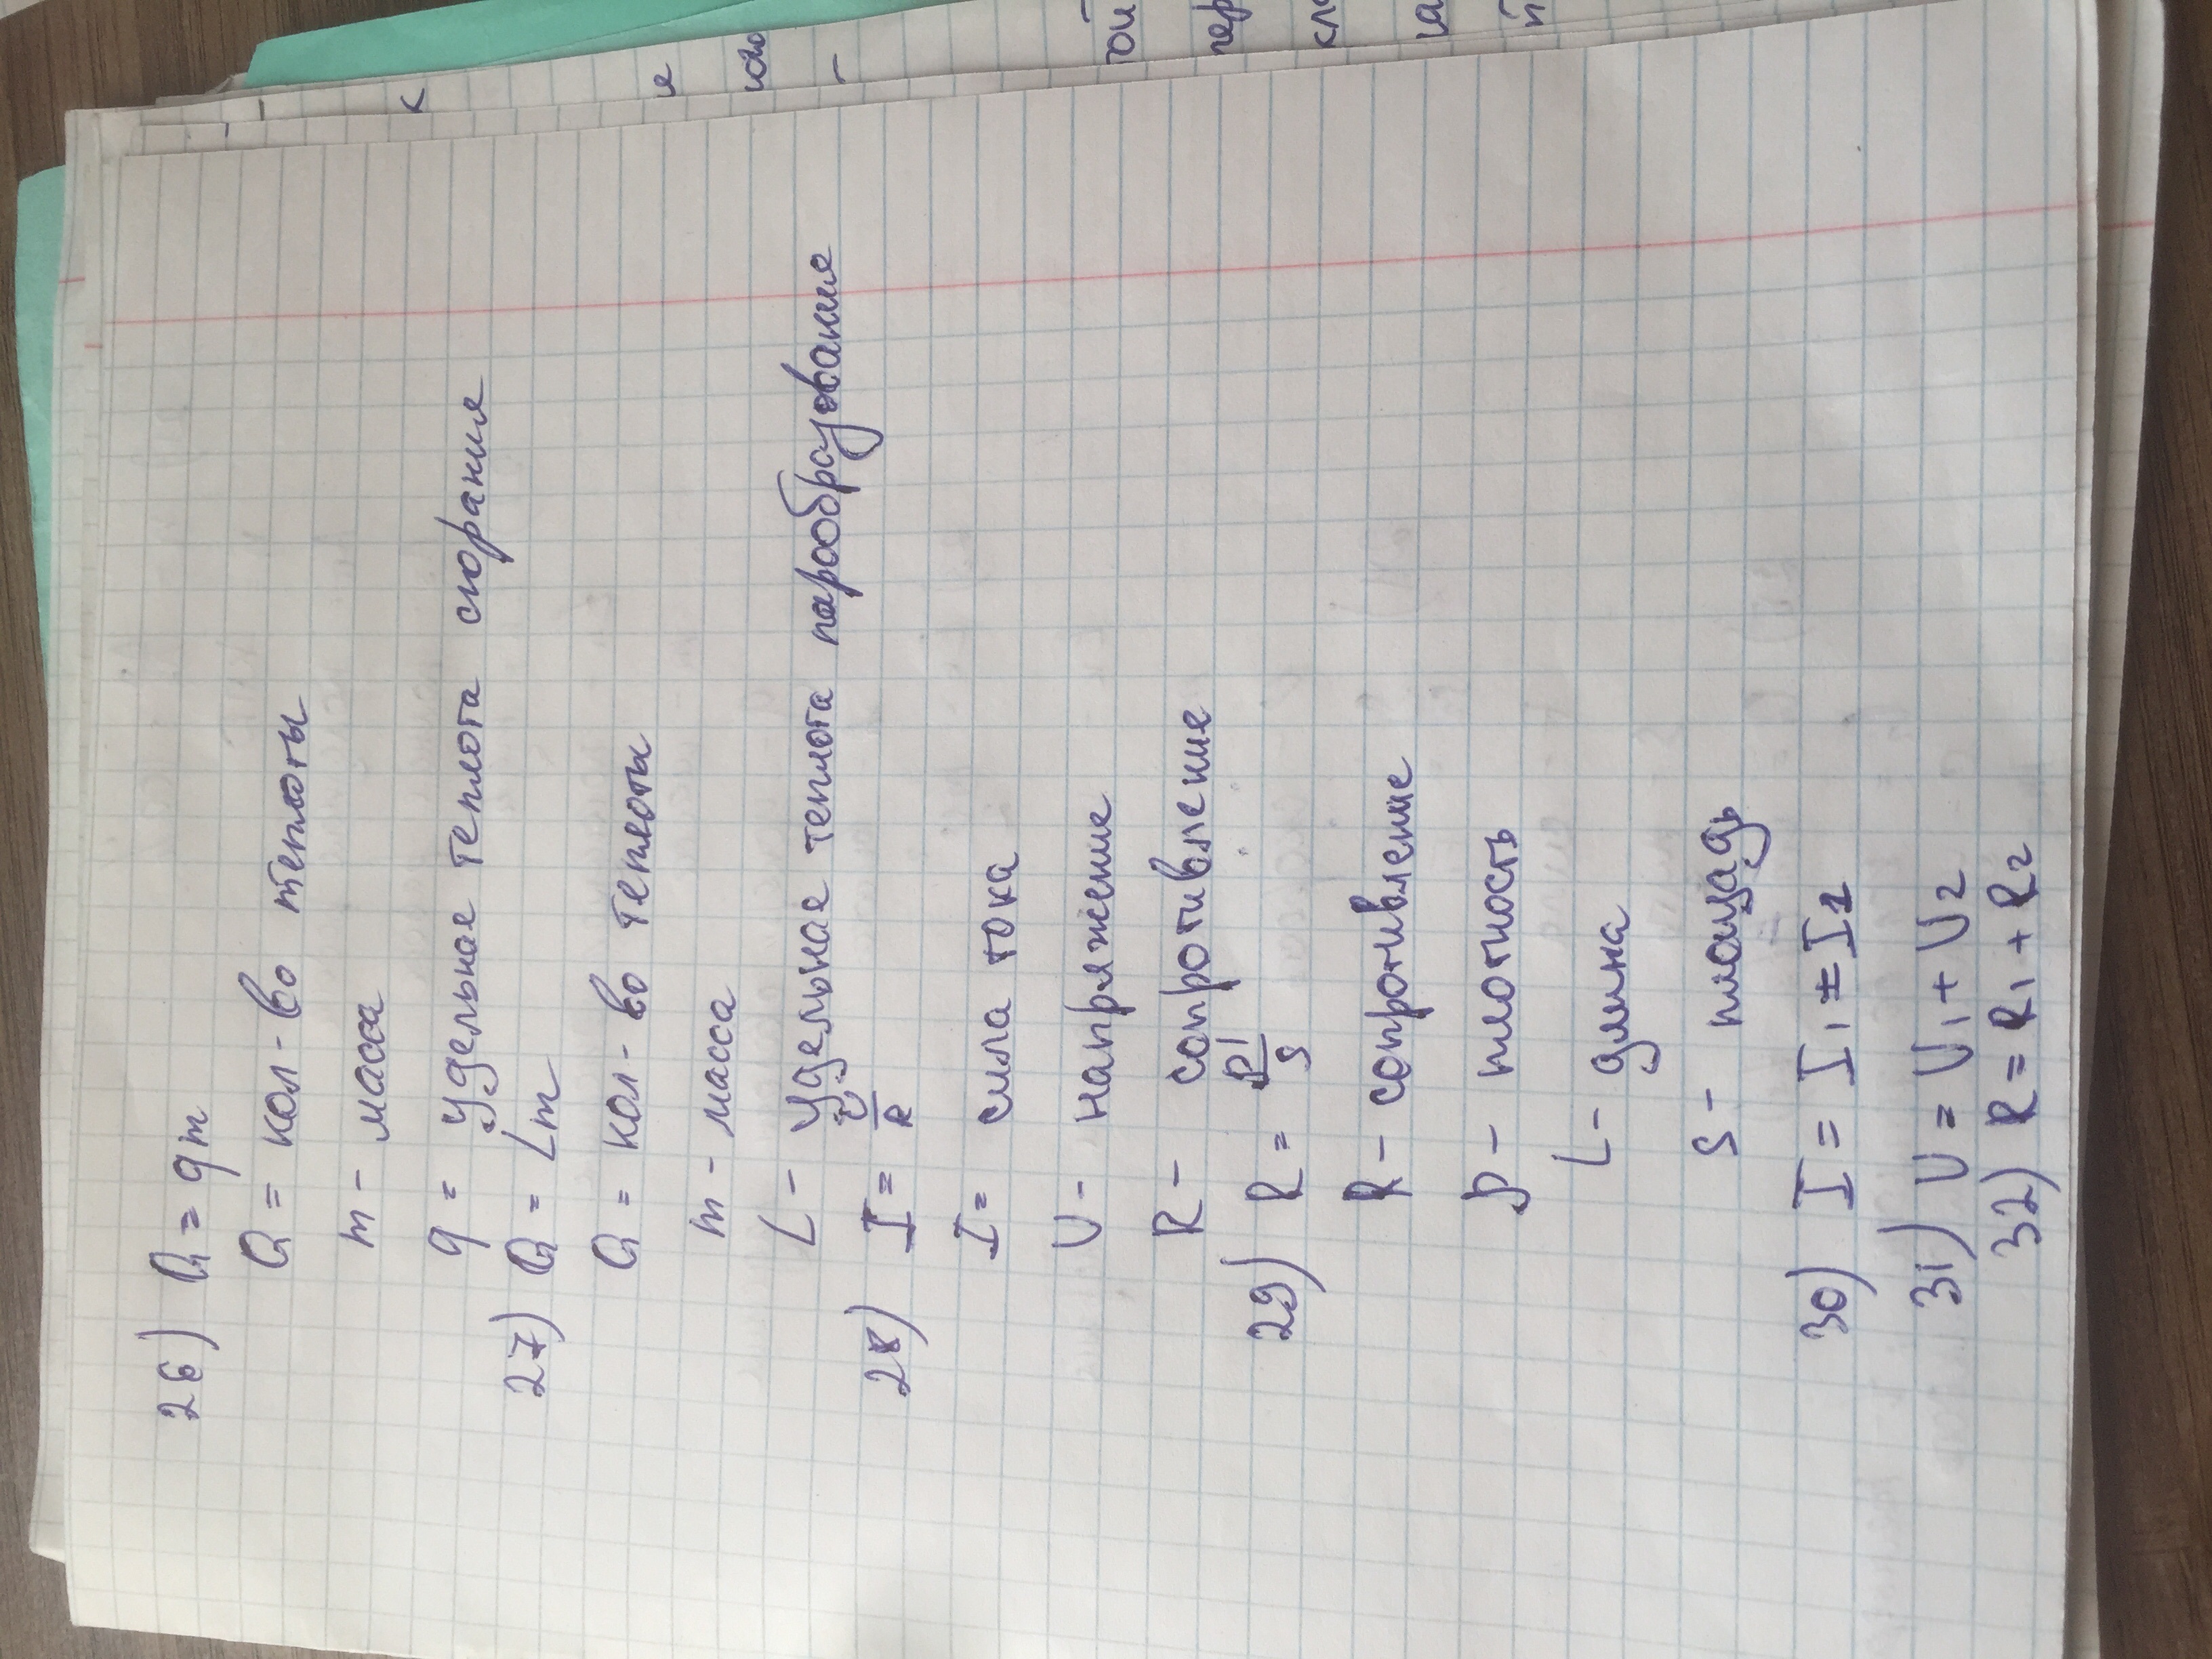 26) Q = qm
Q = кол-во теплоты
m - масса
q = удельная теплота сгорания
27) Q = Lm
Q = кол-во теплоты
m - масса
L - удельная теплота парообразования
28) I = U/R
I = сила тока
U - напряжение
R - сопротивление
29) R = pl/S
R - сопротивление
p - плотность
L - длина
S - площадь
30) I = I₁ = I₂
31) U = U₁ + U₂
32) R = R₁ + R₂